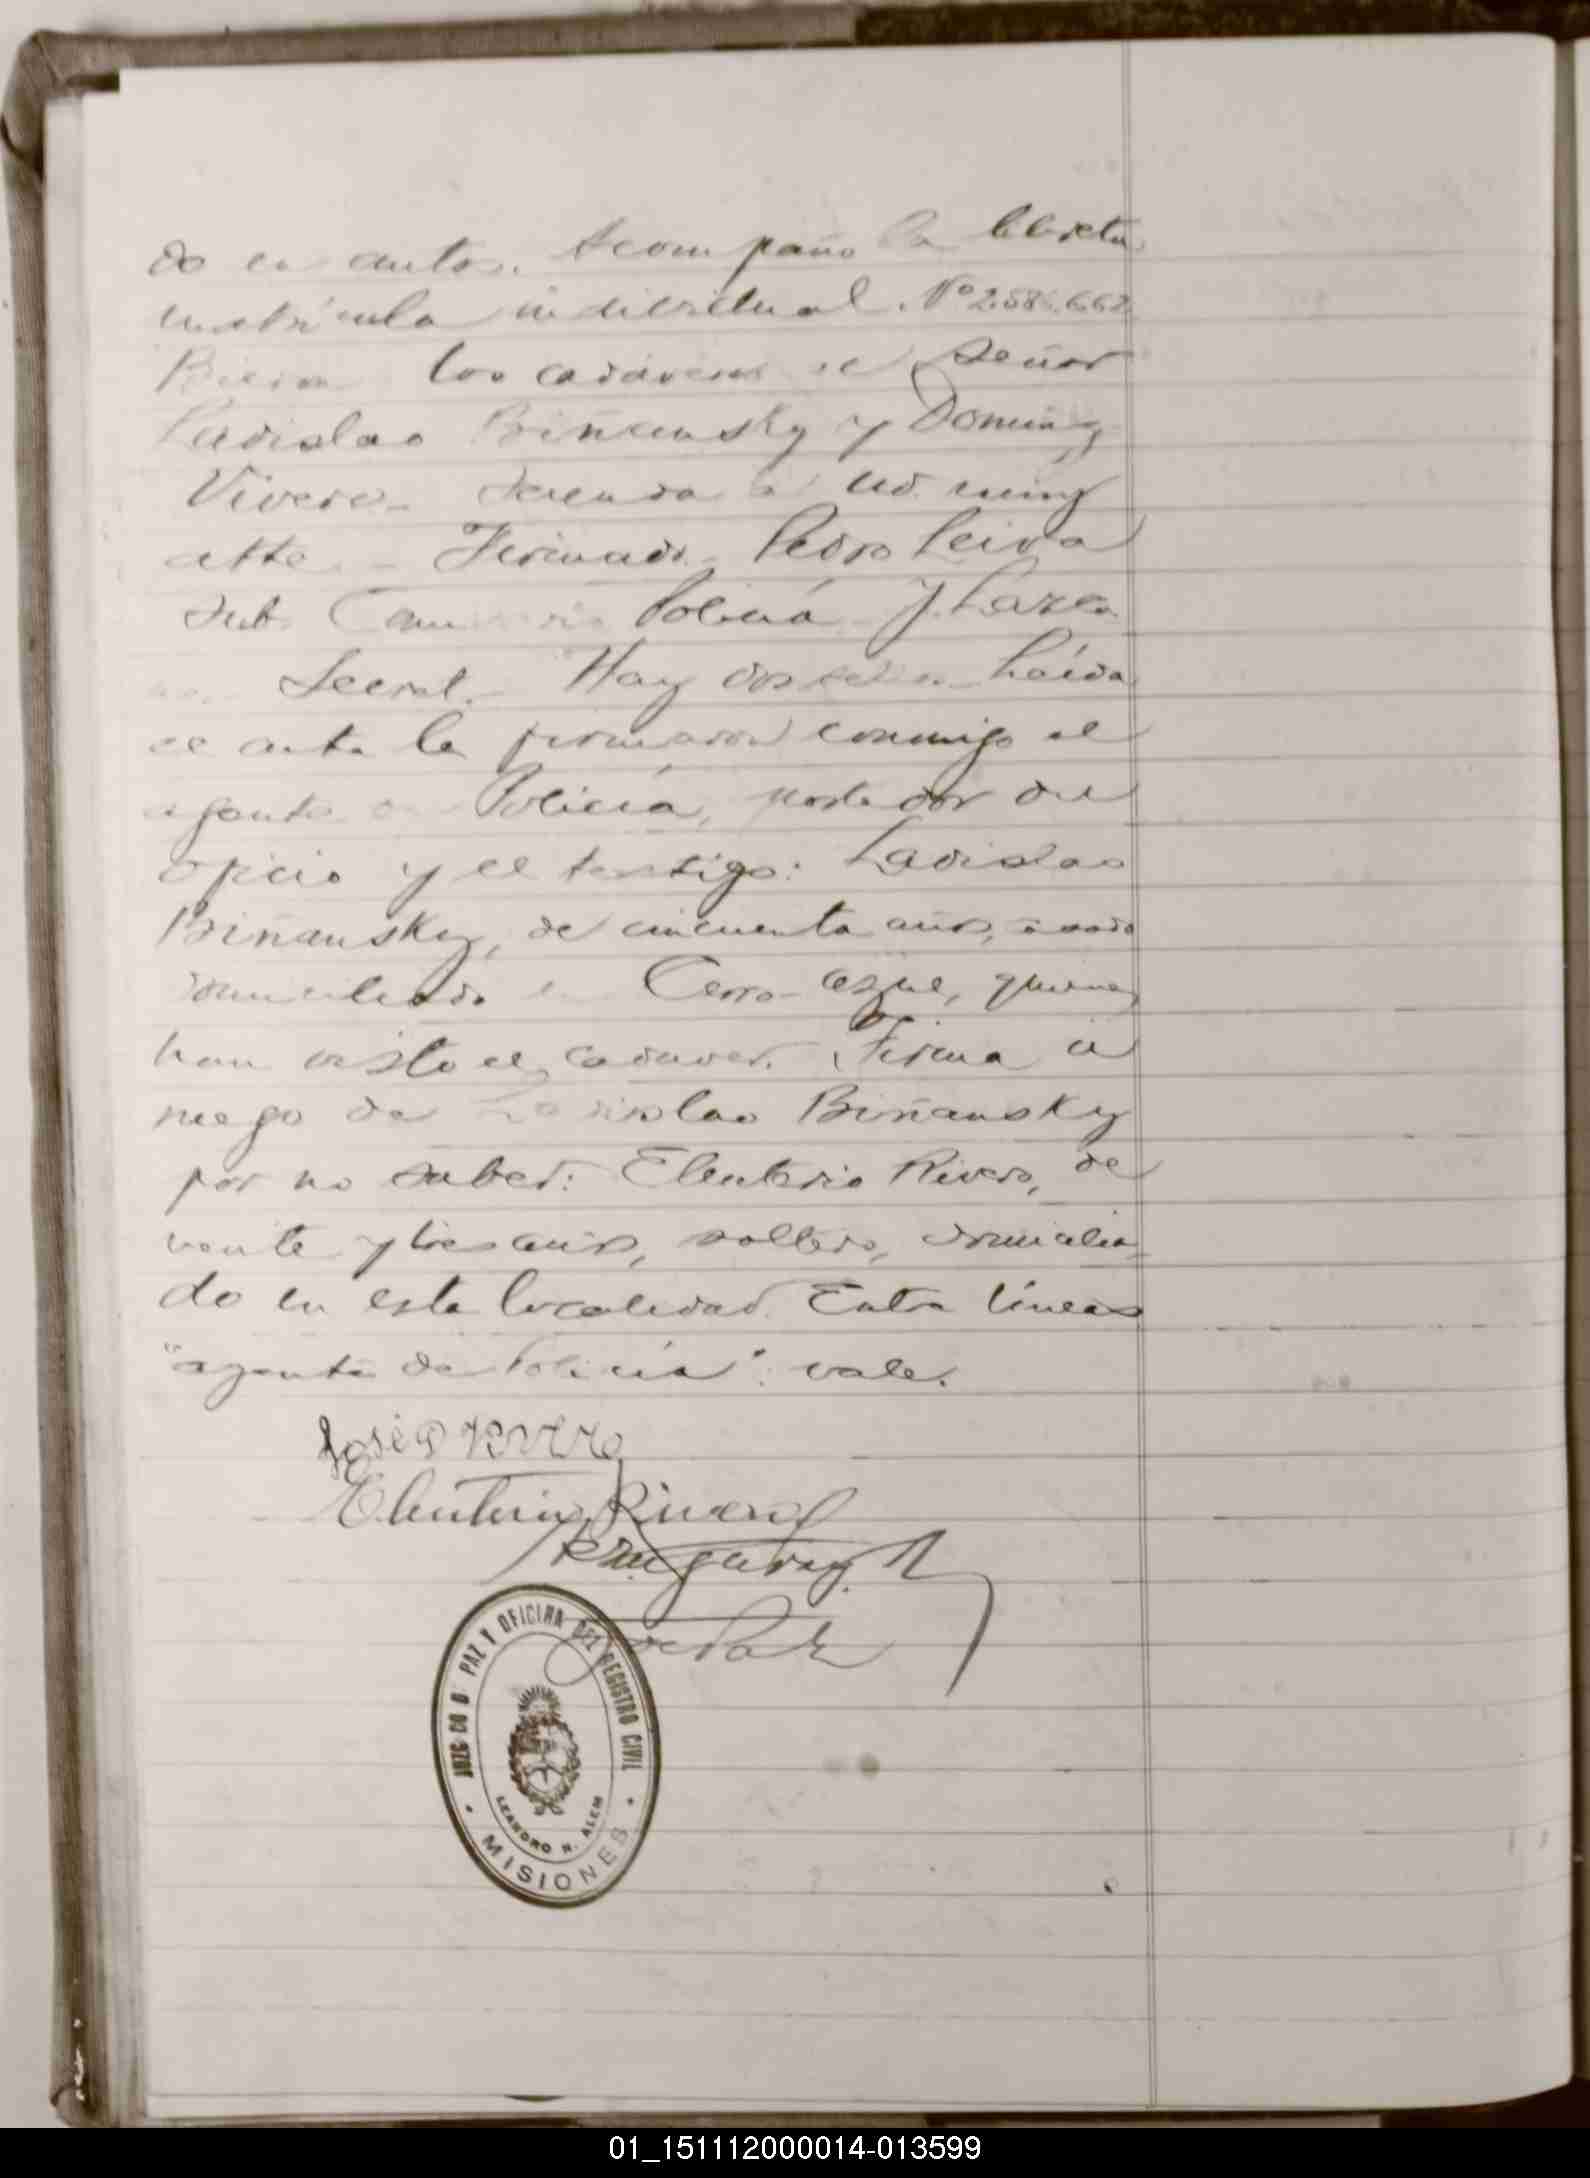 do en autos. Acompaño la libreta
matrícula individual. Nº 2.586.662
los cadáveres el Señor
Ladislao Biñansky y Domingo
Vivero. Saluda a Ud. muy
atte. - Firmado. Pedro Leiva
Sub Comisario Policía J. Lazca
no. Secret. - Hay dos sellos - Leída
el acta la firmaron conmigo el
agente de Policía, portador del
oficio y el testigo: Ladislao
Biñansky, de cincuenta años, casado
domiciliado en Cerro-Azul, quienes
han visto el cadaver. Firma a
ruego de Ladislao Biñansky
por no saber: Eleuterio Rivero, de
veinte y tres años, soltero, domicilia-
do en esta localidad. Entre líneas
"agente de Policía": vale.
José
Eleuterio Rivero
JUZGADO DE PAZ Y OFICINA DEL REGISTRO CIVIL
LEANDRO N. ALEM
MISIONES
01_151112000014-013599